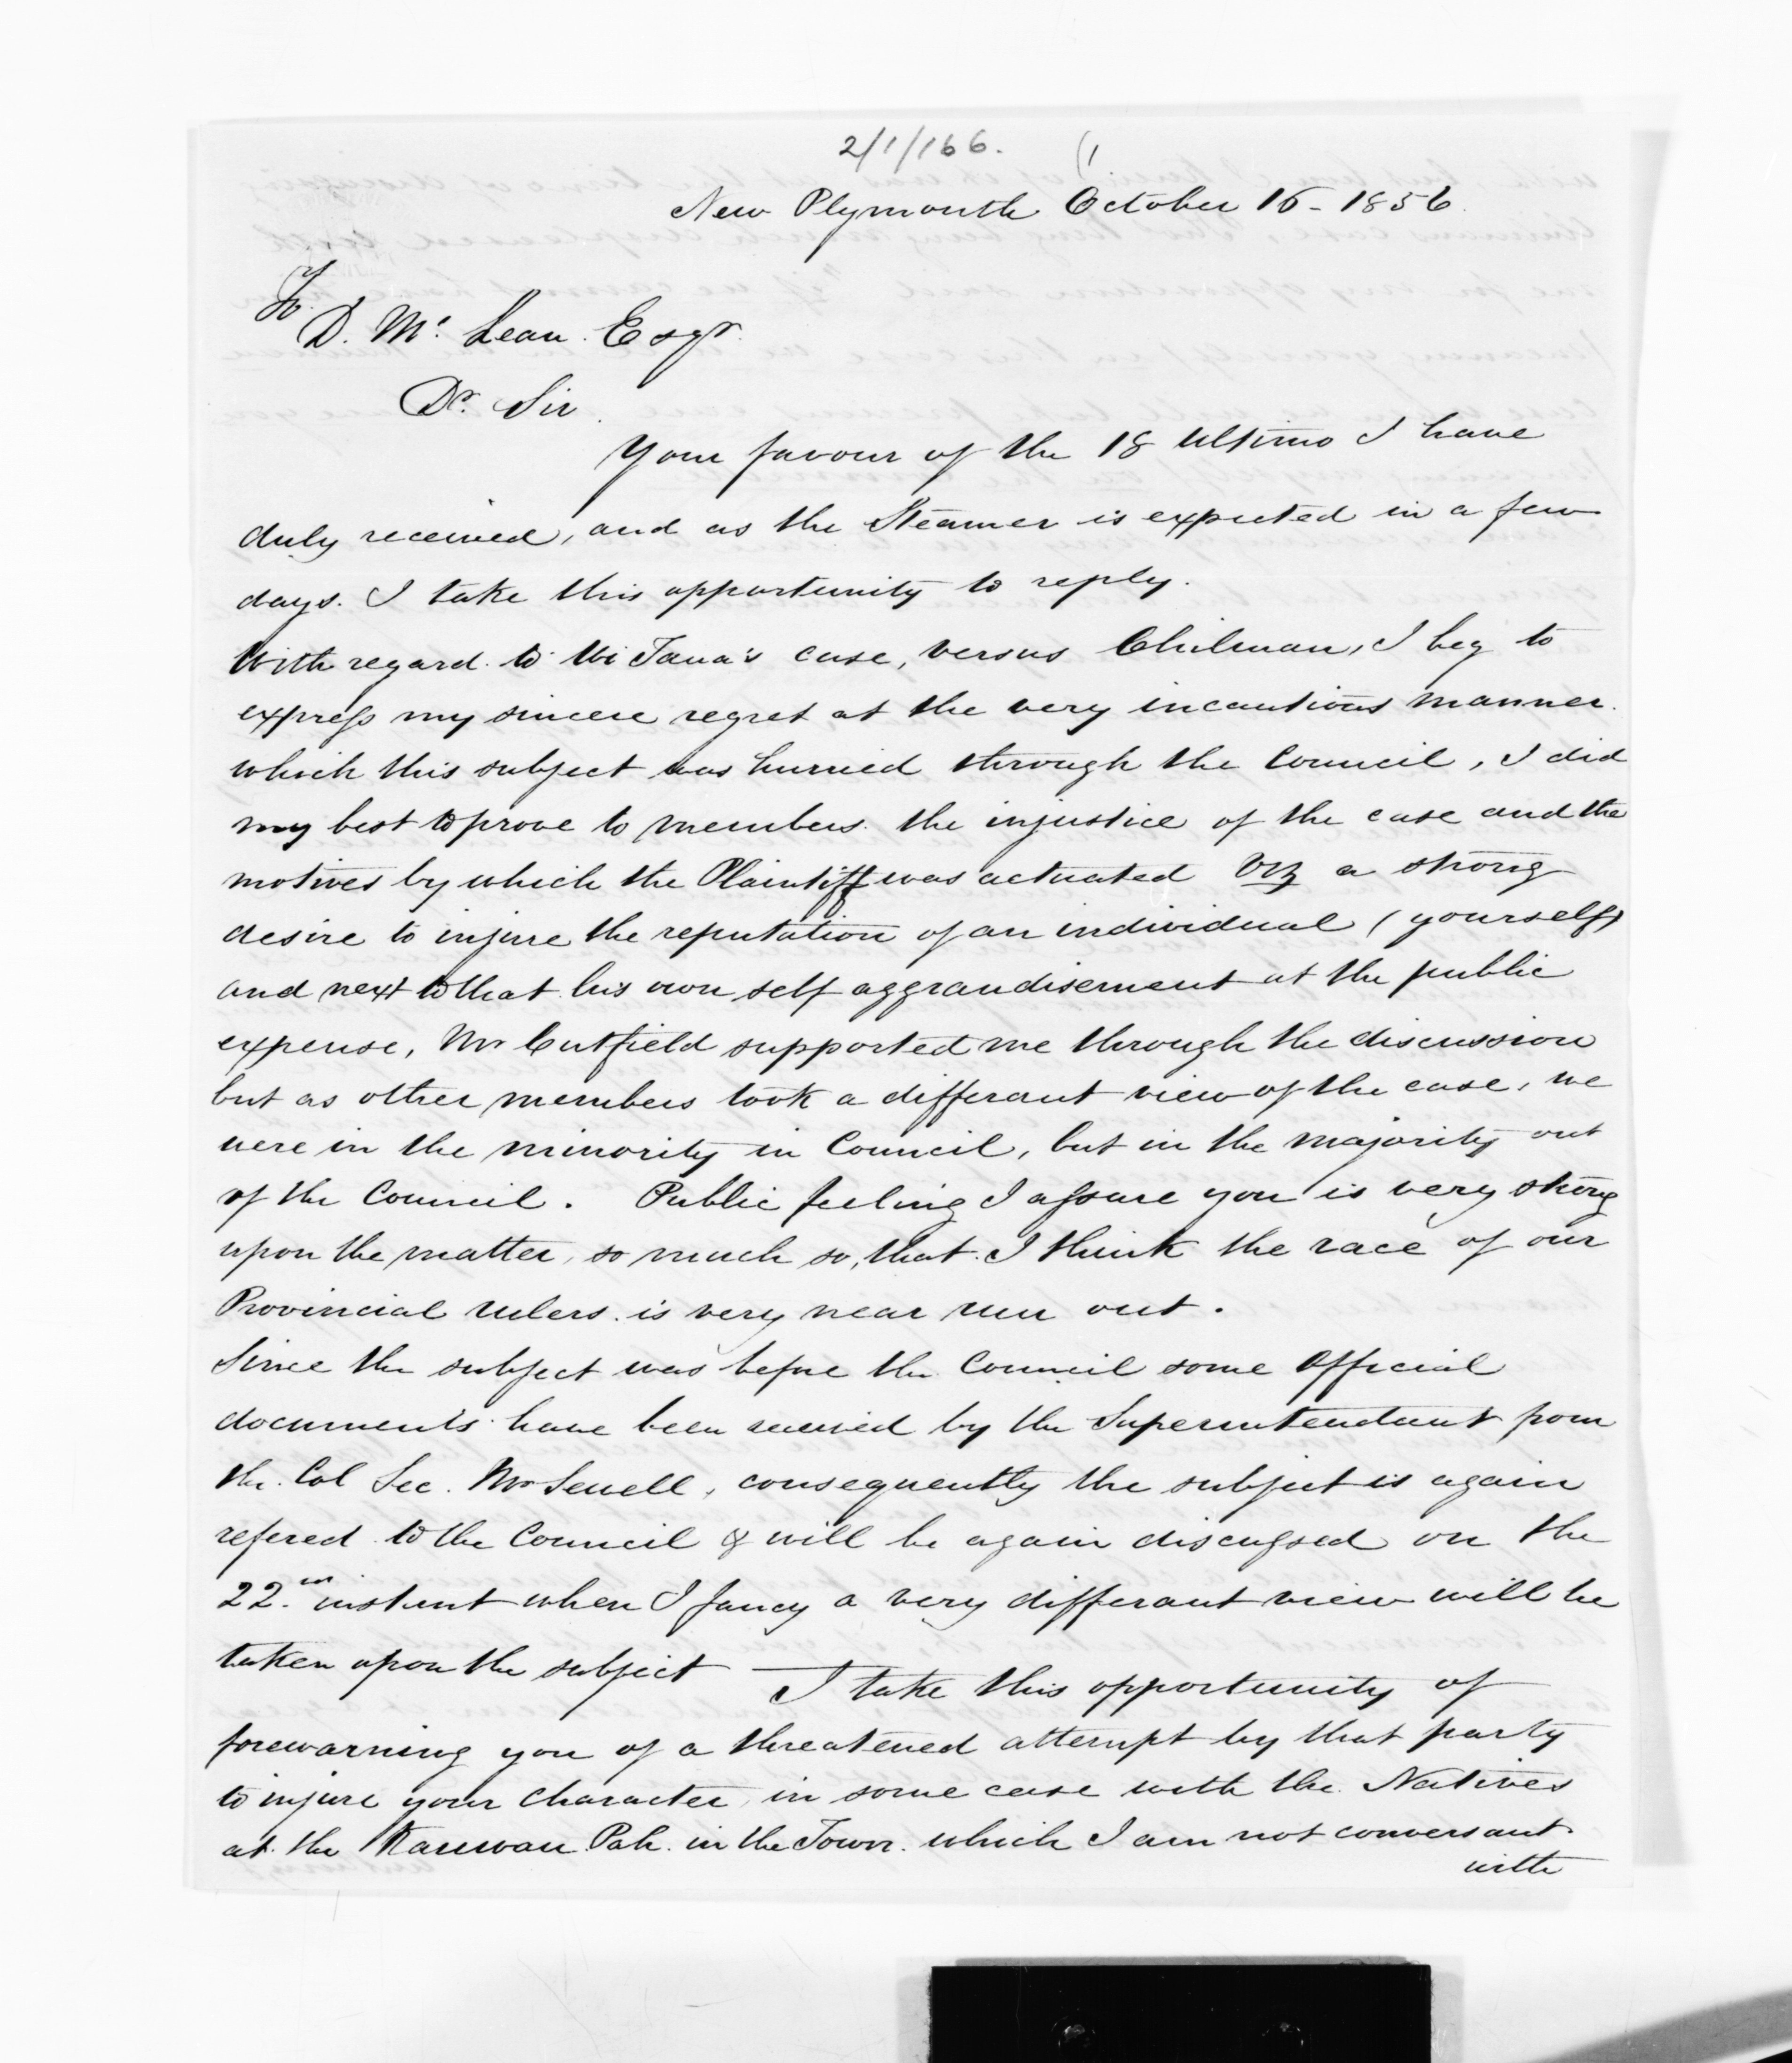 2/1/166. (1
New Plymouth October 16 - 1856
To
D. Mc. Lean. Esqr.
Dr. Sir.
Your favour of the 18 Ultimo I have
duly received, and as the Steamer is expected in a few
days. I take this opportunity to reply.
With regard to Wi Tana's case, versus Chilman, I beg to
express my sincere regret at the very incautious manner.
which this subject was hurried through the Council, I did
my best to prove to members. the injustice of the case and the
motives by which the Plaintiff was actuated Viz a strong
desire to injure the reputation of an individual (yourself)
and next to that his own self aggrandisement at the public
expense, Mr Cutfield supported me through the discussion
but as other members took a differant view of the case, we
were in the minority in Council, but in the majority out
of the Council. Public feeling I assure you is very strong
upon the matter, so much so, that. I think the race of our
Provincial rulers. is very near run out.
Since the subject was before the Council some Official
documents have been received by the Superintendant from
the. Col Sec. Mr Sewell, consequently the subject is again
refered to the Council & will be again discussed on the
22. instant when I fancy a very differant view will be
taken upon the subject — I take this opportunity of
forewarning you of a threatened attempt by that party
to injure your character, in some case with the Natives
at. the Pah. in the Town. which I am not conversant
with